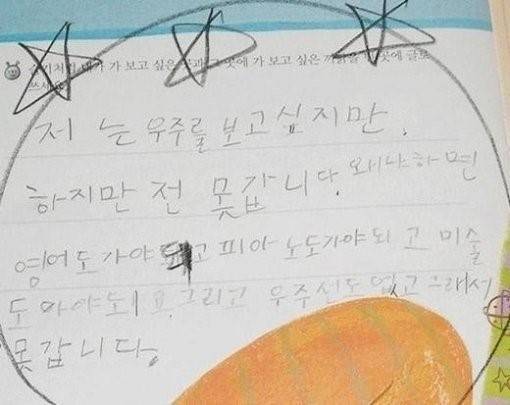 가 보고 싶은 곳에 가 보고 싶은 곳에 글로
저 는 우주를 보고싶지만.
하지만 전 못갑니다. 왜냐하면
영어도가야되고 피아노도가야되 고 미술
도 가야되고. 그리고 우주선도 없고 그래서
못갑니다.